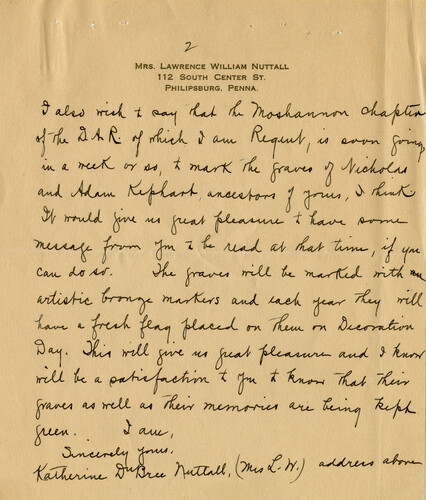 2
MRS. LAWRENCE WILLIAM NUTTALL
112 SOUTH CENTER ST.
PHILIPSBURG, PENNA.
I also wish to say that the Moshannon chapter
of the D.A.R. of which I am Regent, is soon going
in a week or so, to mark the graves of Nicholas
and Adam Kephart, ancestors of yours, I think
It would give us great pleasure to have some
message from you to be read at that time, if you
can do so. The graves will be marked with an
artistic bronze markers and each year they will
have a fresh flag placed on them on Decoration
Day. This will give us great pleasure and I know
will be a satisfaction to you to know that their
graves as well as their memories are being kept
green. I am,
Sincerely yours,
Katherine DuBree Nuttall, (Mrs L.W.) address above